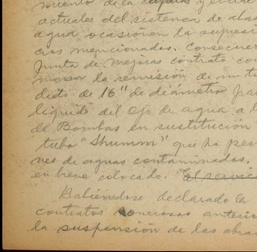 miento de la
actuales del sistema de
agua, ocasionan la supresi
cias mencionadas.
Junta de Mejoras contrató con
la remisión de un tu
de 16" de diámetro pa
líquido del Ojo de agua a l
de Bombas en sustitución
tubo "Shumm" que ha per
nes de aguas contaminadas.
en breve colocado.
Habiéndose declarado la
contratos onerosos anterio
la suspensión de las obras